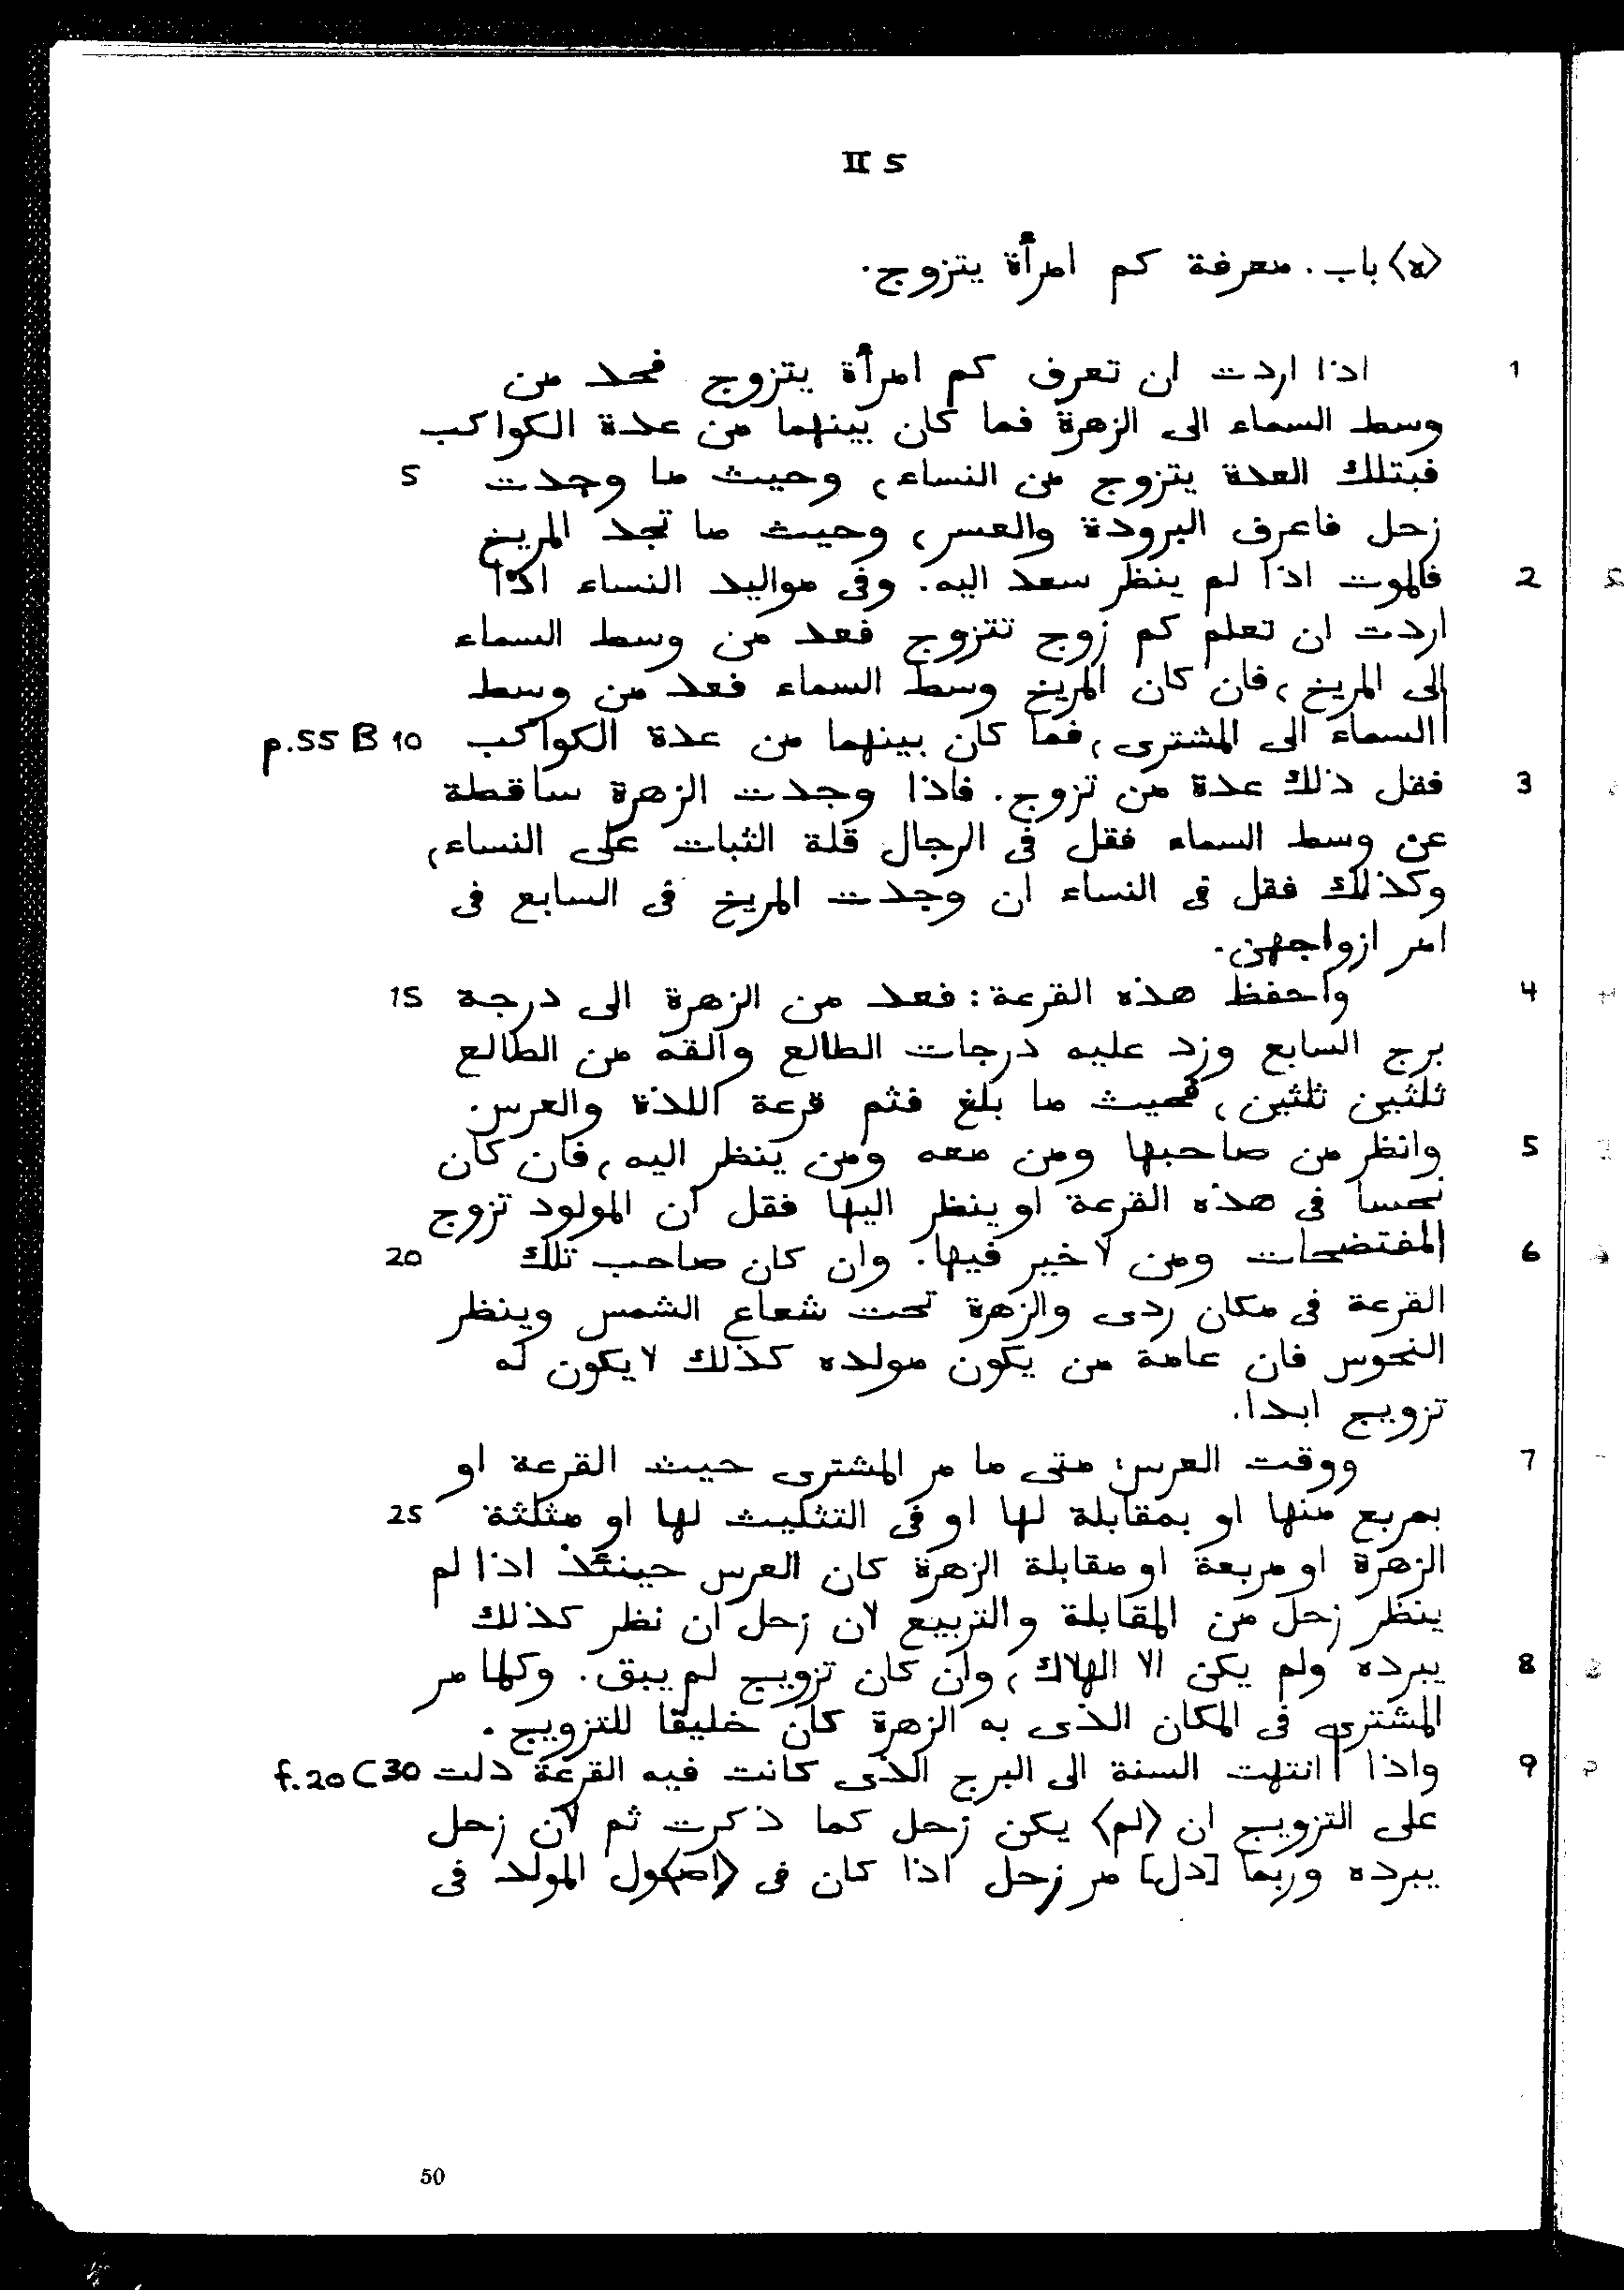 II 5
<ه> باب. معرفة كم امرأة يتزوج.
1 اذا اردت ان تعرف كم امرأة يتزوج فحد من
وسط السماء الى الزهرة فما كان بينهما من عدة الكواكب
فبتلك العدة يتزوج من النساء، وحيث ما وجدت 5
زحل فاعرف البرودة والعسر، وحيث ما تجد المريخ
2 فالموت اذا لم ينظر سعد اليه. وفى مواليد النساء اذا
اردت ان تعلم كم زوج تتزوج فعد من وسط السماء
الى المريخ، فان كان المريخ وسط السماء فعد من وسط
|السماء الى المشترى، فما كان بينهما من عدة الكواكب 10 p.55 B
3 فقل ذلك عدة من تزوج. فاذا وجدت الزهرة ساقطة
عن وسط السماء فقل فى الرجال قلة الثبات على النساء،
وكذلك فقل فى النساء ان وجدت المريخ فى السابع فى
امر ازواجهن.
4 واحفظ هذه القرعة: فعد من الزهرة الى درجة 15
برج السابع وزد عليه درجات الطالع والقه من الطالع
ثلثين ثلثين، فحيث ما بلغ فثم قرعة اللذة والعرس.
5 وانظر من صاحبها ومن معه ومن ينظر اليه، فان كان
نحسا فى هذه القرعة او ينظر اليها فقل ان المولود تزوج
6 المفتضحات ومن لا خير فيها. وان كان صاحب تلك 20
القرعة فى مكان ردى والزهرة تحت شعاع الشمس وينظر
النحوس فان عامة من يكون مولده كذلك لا يكون له
تزويج ابدا.
7 ووقت العرس؛ متى ما مر المشترى حيث القرعة او
بمربع منها او بمقابلة لها او فى التثليث لها او مثلثة 25
الزهرة او مربعة او مقابلة الزهرة كان العرس حينئذ اذا لم
ينظر زحل من المقابلة والتربيع لان زحل ان نظر كذلك
8 يبرده ولم يكن الا الهلاك، وان كان تزويج لم يبق. وكلما مر
المشترى فى المكان الذى به الزهرة كان خليقا للتزويج.
9 واذا | انتهت السنة الى البرج الذى كانت فيه القرعة دلت 30 f.20 C
على التزويج ان <لم> يكن زحل كما ذكرت ثم لان زحل
يبرده وربما [دل] مر زحل اذا كان فى <اص>ول المولد فى
50